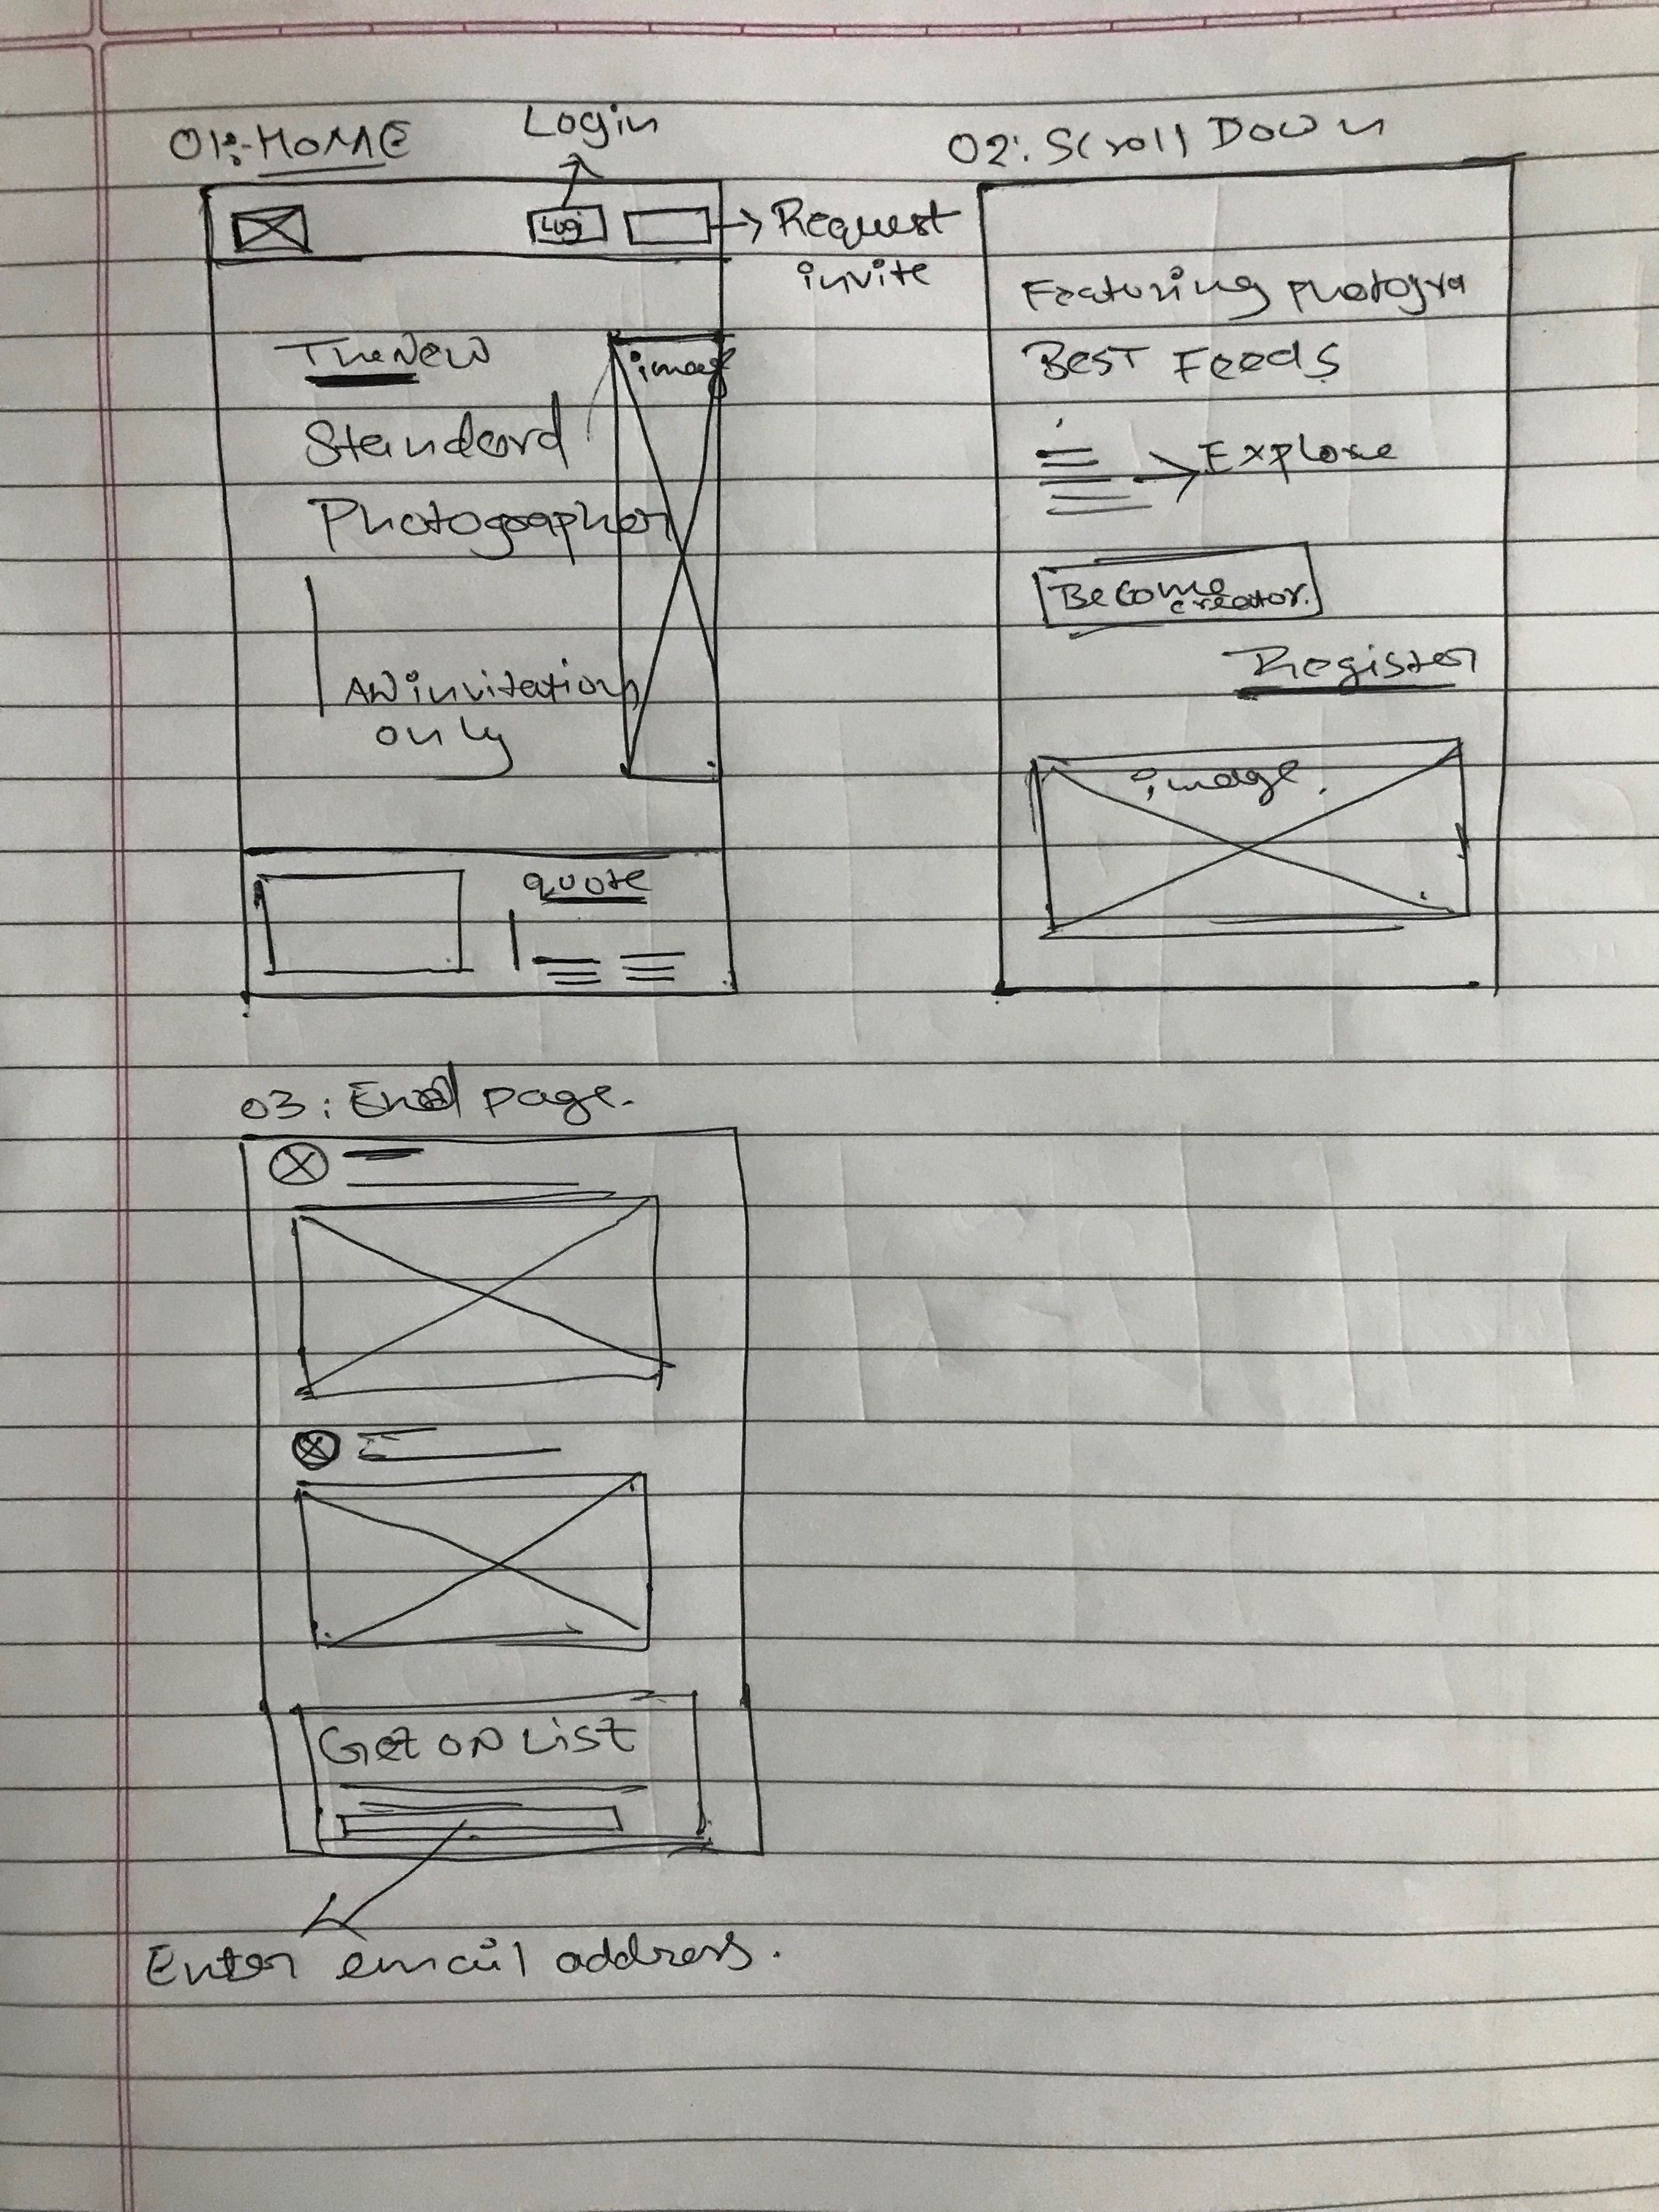 01:- HOME
Login
Logi
Request
invite
The New
image
Standard
Photographer
AN invitation
only
quote
02: Scroll Down
Featuring photogra
BEST FEEds
Explore
Become
creator.
Register
image.
03: End page.
Get ON LIST
Enter email address.